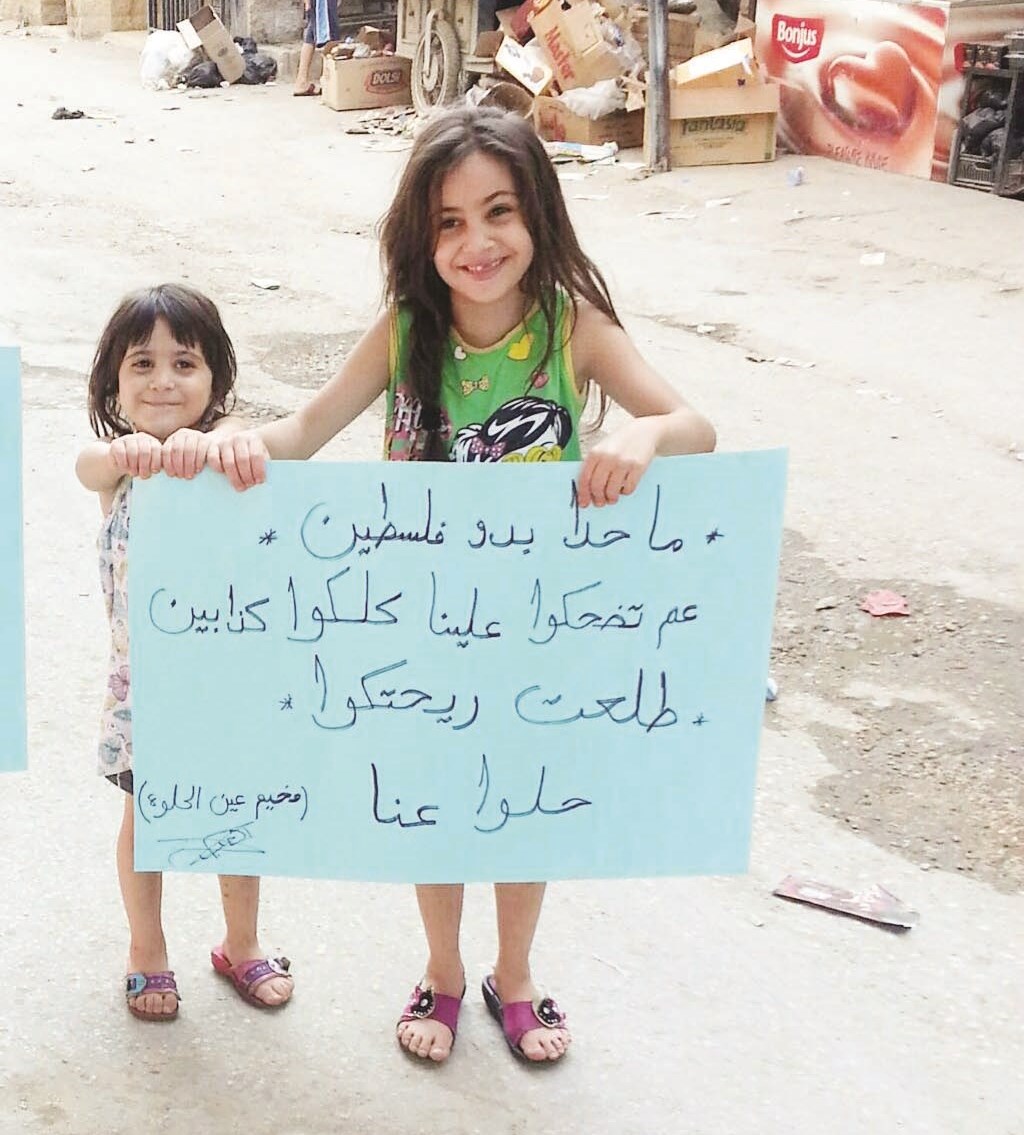 DOLSI
Master
fantasia
Bonjus
PLEASURE
* ما حدا بدو فلسطين *
عم تضحكوا علينا كلكوا كذابين
* طلعت ريحتكوا *
حلوا عنا
(مخيم عين الحلوة)